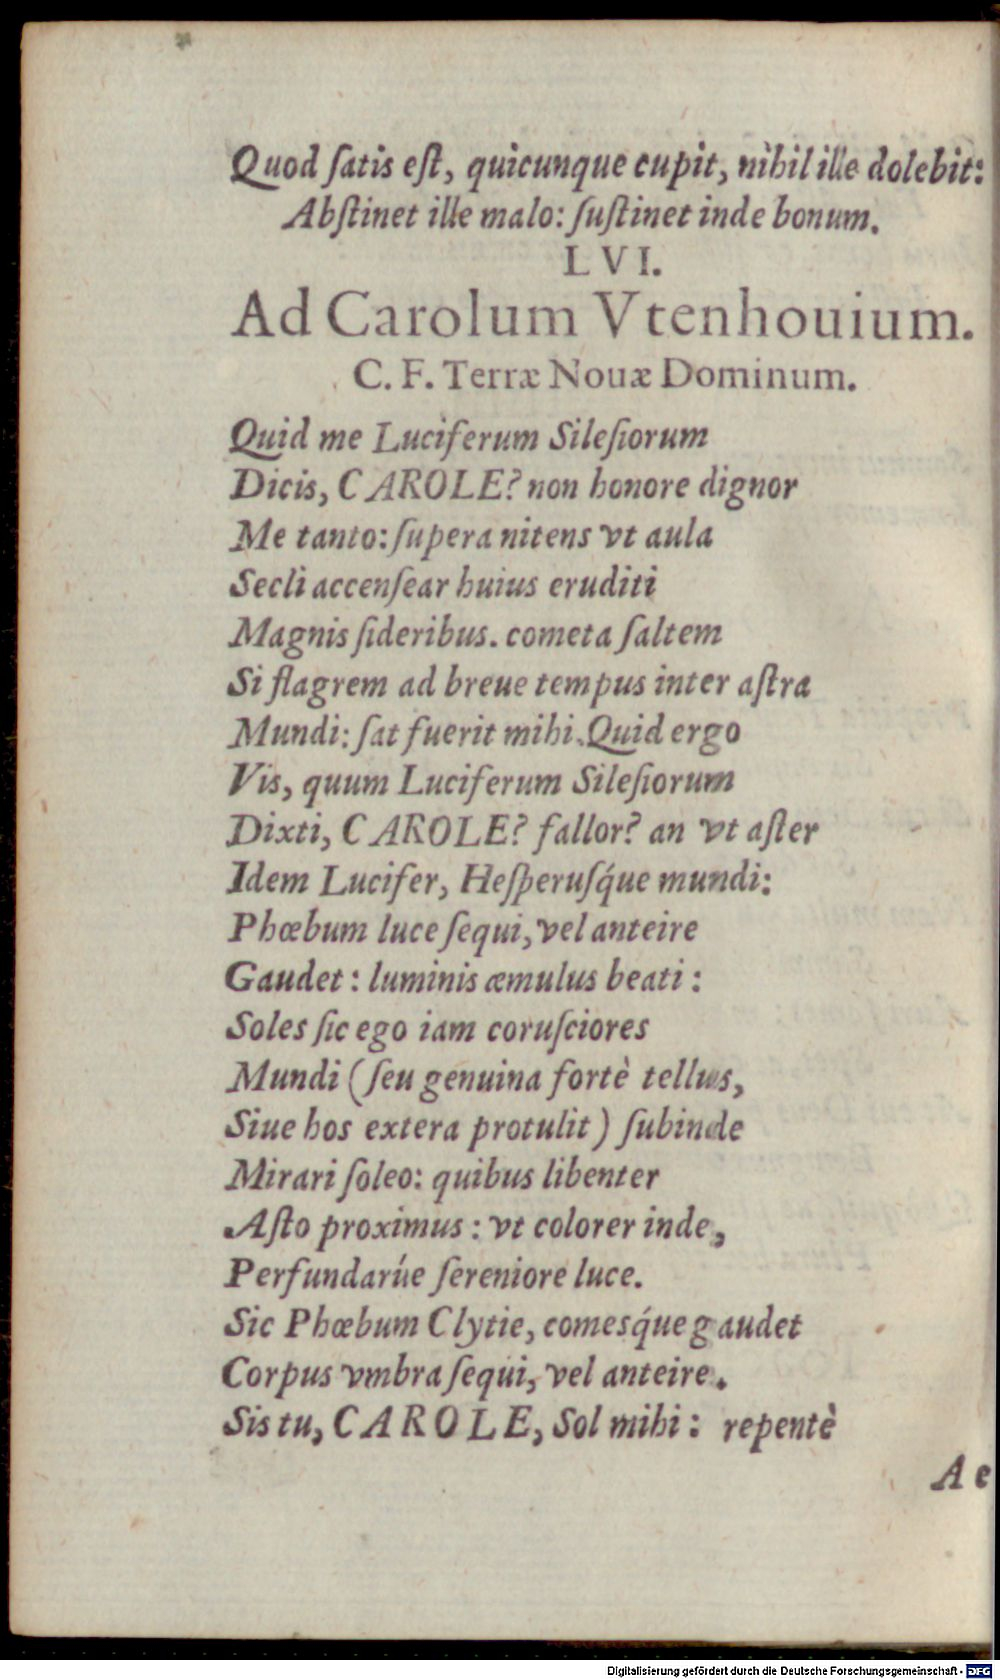 Quod ſatis eſt, quicunque cupit, nihil ille dolebit:
Abſtinet ille malo: ſuſtinet inde bonum.
LVI.
Ad Carolum Vtenhouium.
C. F. Terræ Nouæ Dominum.
Quid me Luciferum Sileſiorum
Dicis, CAROLE? non honore dignor
Me tanto: ſupera nitens vt aula
Secli accenſear huius eruditi
Magnis ſideribus. cometa ſaltem
Si flagrem ad breue tempus inter aſtra
Mundi: ſat fuerit mihi. Quid ergo
Vis, quum Luciferum Sileſiorum
Dixti, CAROLE? fallor? an vt aſter
Idem Lucifer, Heſperuſq́ue mundi:
Phœbum luce ſequi, vel anteire
Gaudet: luminis æmulus beati:
Soles ſic ego iam coruſciores
Mundi (ſeu genuina fortè tellus,
Siue hos extera protulit) ſubinde
Mirari ſoleo: quibus libenter
Aſto proximus: vt colorer inde,
Perfundarúe ſereniore luce.
Sic Phœbum Clytie, comesq́ue gaudet
Corpus vmbra ſequi, vel anteire.
Sis tu, CAROLE, Sol mihi: repentè
Ae
Digitalisierung gefördert durch die Deutsche Forschungsgemeinschaft - DFG